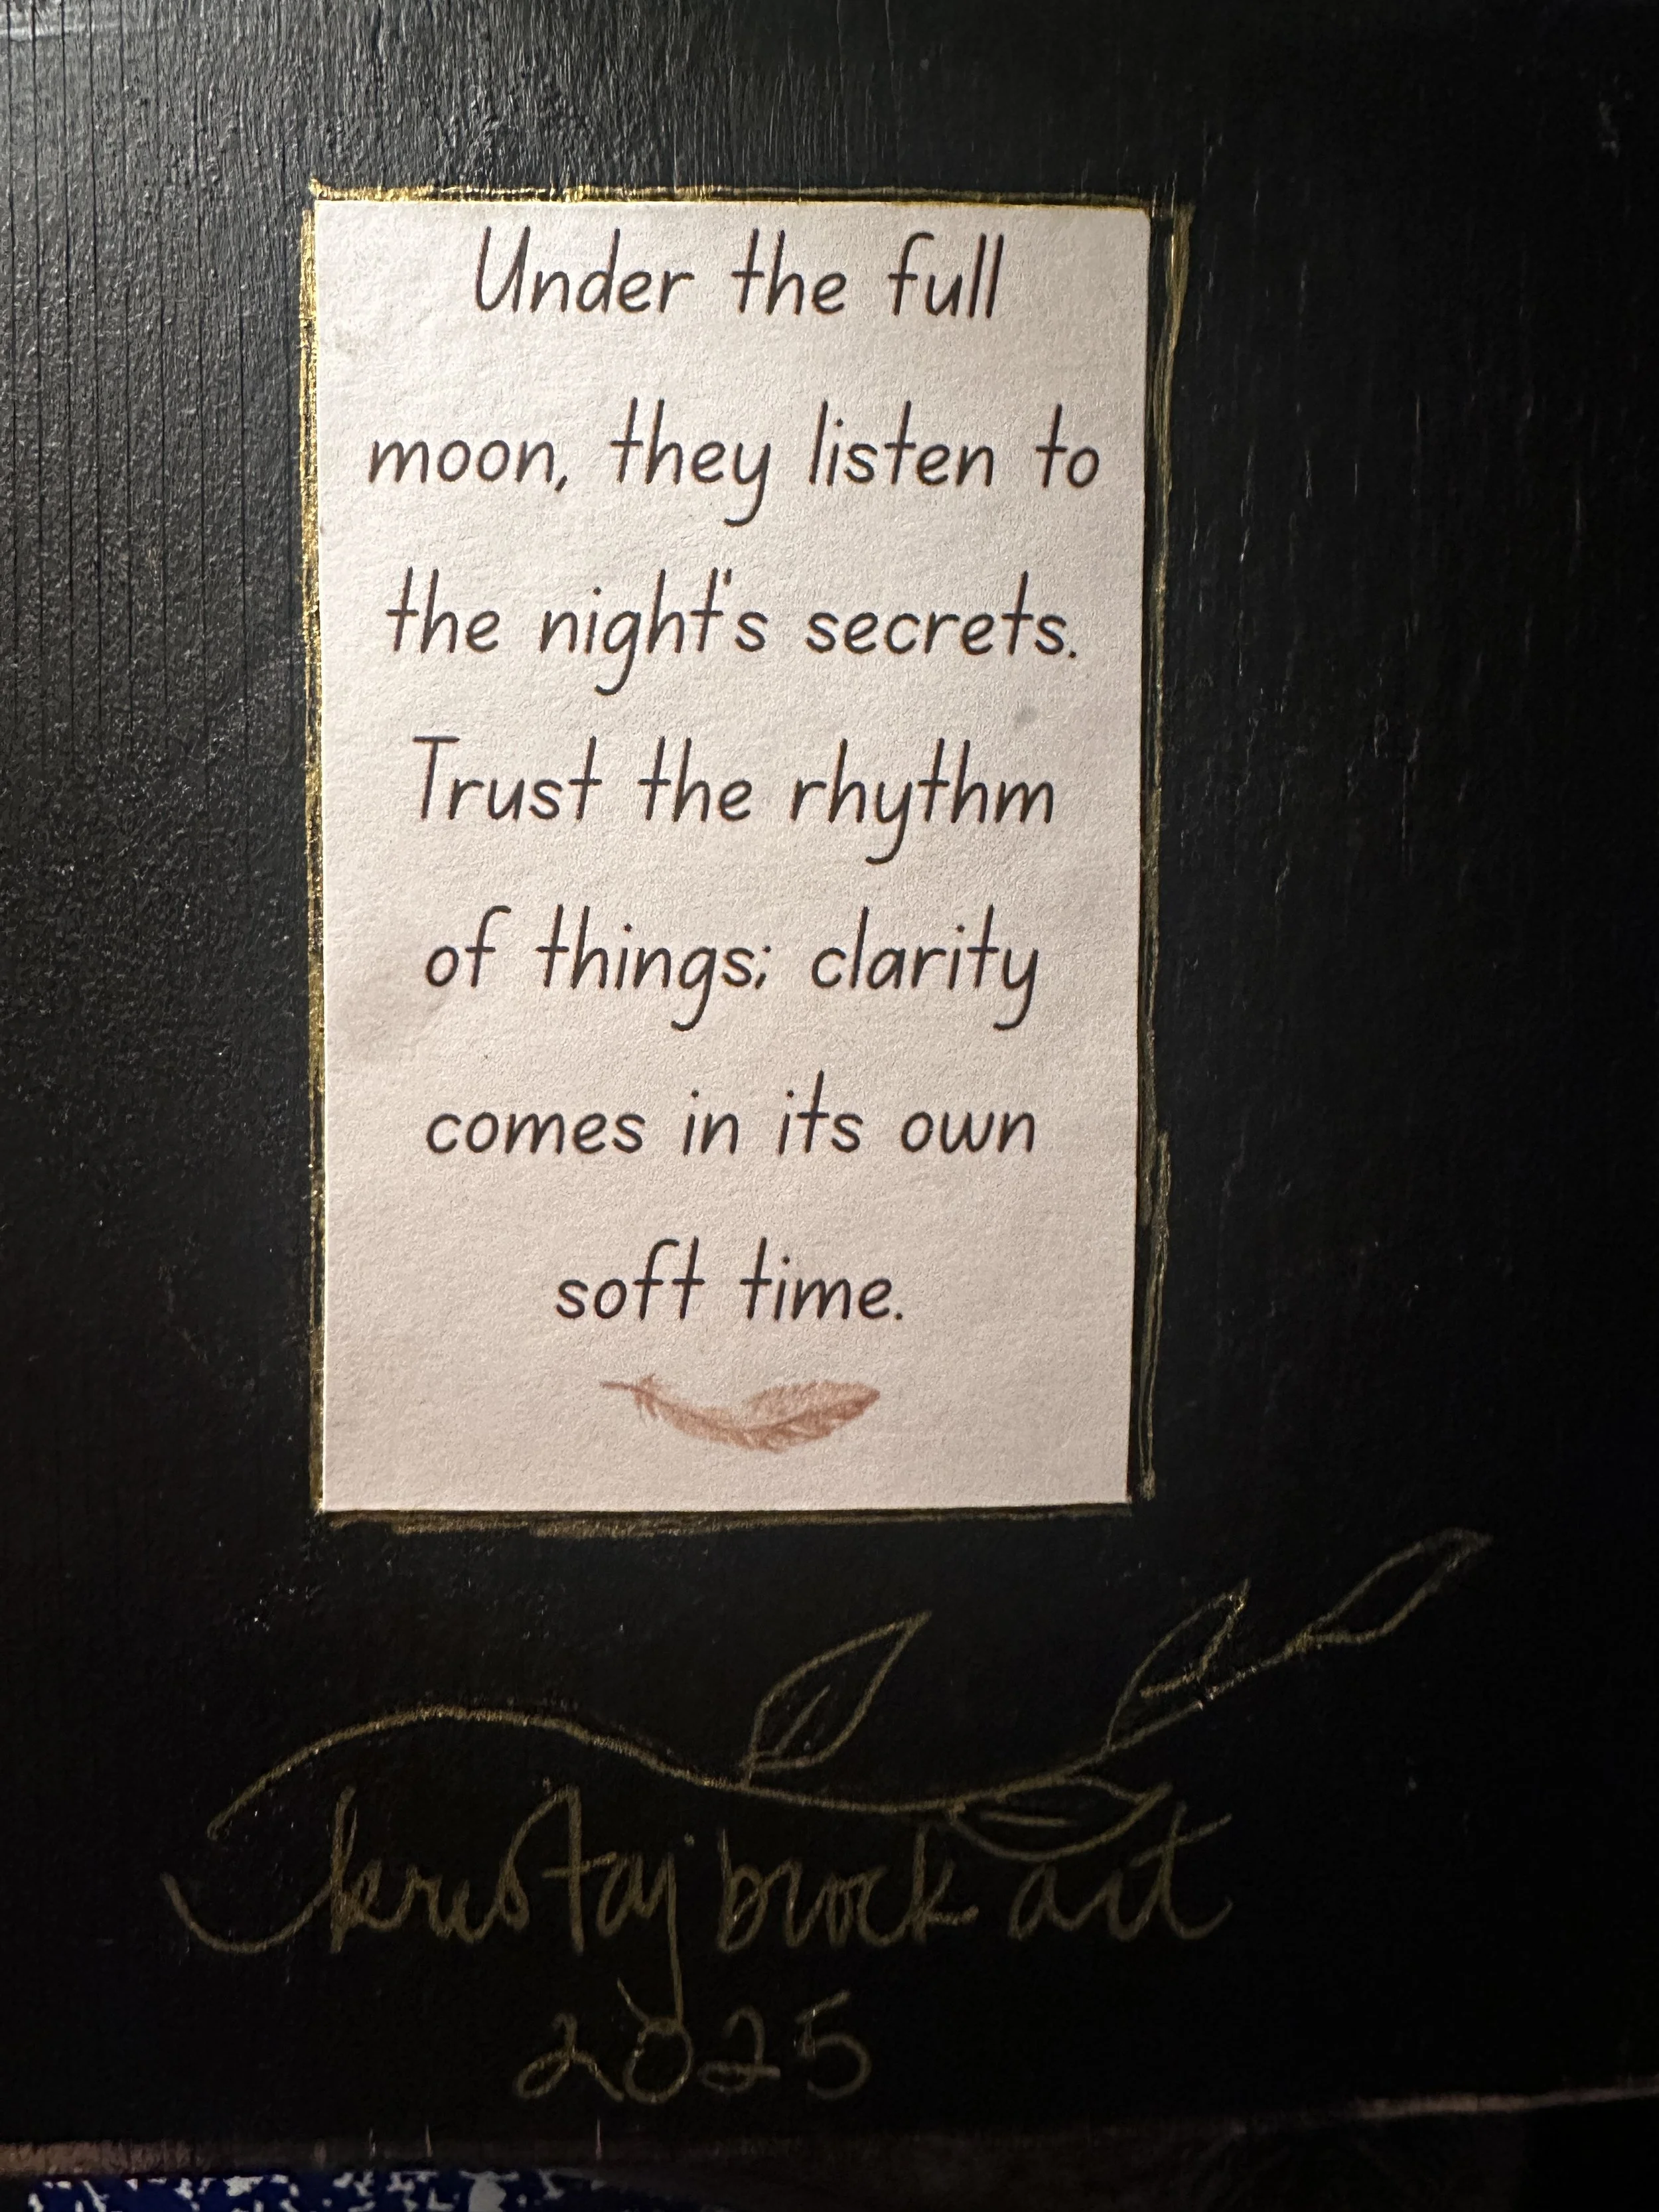 Under the full
moon, they listen to
the night's secrets.
Trust the rhythm
of things; clarity
comes in its own
soft time.
kristaj brock art
2025